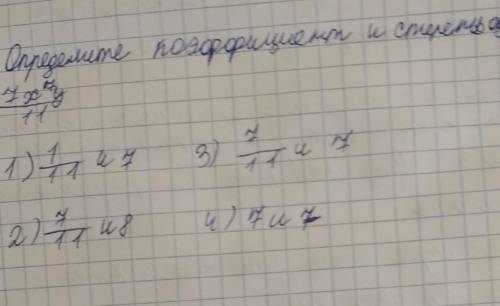 Определите коэффициент и степень
7x⁷y
11
1) 1/11 и 7 3) 7/11 и 7
2) 7/11 и 8 4) 7 и 7